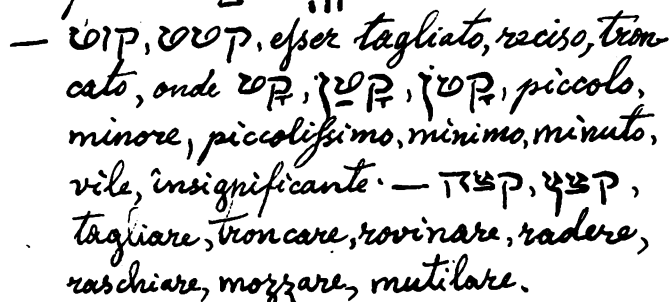 — קוט, קטט, eſser tagliato, reciso, tron-
cato, onde קָט, קָטַן, קָטֹן, piccolo,
minore, piccoliſsimo, minimo, minuto,
vile, insignificante. — קצה, קצץ,
tagliare, troncare, rovinare, radere,
raschiare, mozzare, mutilare.